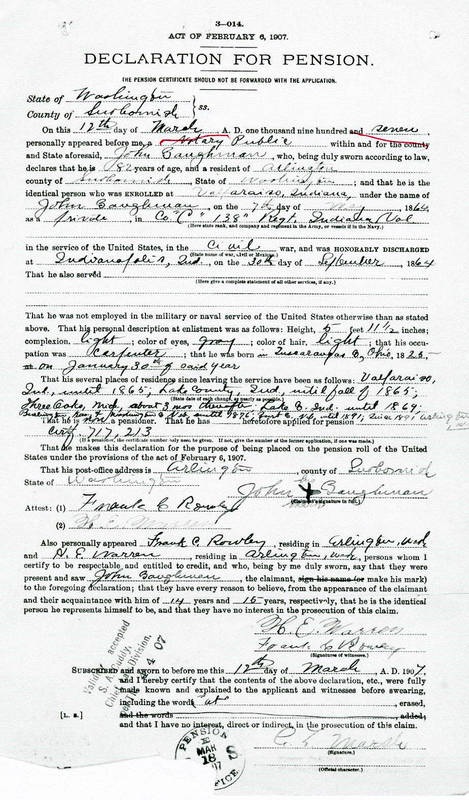 3—014.
ACT OF FEBRUARY 6, 1907.
DECLARATION FOR PENSION.
THE PENSION CERTIFICATE SHOULD NOT BE FORWARDED WITH THE APPLICATION.
State of Washington
County of Snohomish ss.
On this 12th day of March A. D. one thousand nine hundred and seven
personally appeared before me, a Notary Public within and for the county
and State aforesaid, John Baughman, who, being duly sworn according to law,
declares that he is 82 years of age, and a resident of Arlington
county of Snohomish, State of Washington; and that he is the
identical person who was ENROLLED at Valparaiso, Indiana, under the name of
John Baughman, on the day of, 1864,
as a private, in Co "C" 138" Regt. Indiana Vol
(Here state rank, and company and regiment in the Army, or vessels if in the Navy.)
in the service of the United States, in the Civil war, and was HONORABLY DISCHARGED
(State name of war, Civil or Mexican.)
at Indianapolis, Ind., on the 30th day of September, 1864
That he also served
(Here give a complete statement of all other services, if any.)
That he was not employed in the military or naval service of the United States otherwise than as stated
above. That his personal description at enlistment was as follows: Height, 5 feet 11 1/2 inches;
complexion, light; color of eyes, gray; color of hair, light; that his occu-
pation was Carpenter; that he was born in Tuscarawas Co, Ohio, 1825.
on January 30th of said year
That his several places of residence since leaving the service have been as follows: Valparaiso,
Ind., until 1865; Lake County, Ind. until fall of 1865;
(State date of each change, as nearly as possible.)
Three Oaks, Mich. about 3 mos; Lake Co. Ind. until 1869.
until 1876; until 1891; since 1891 Arlington
That he is a pensioner. That he has heretofore applied for pension
Ctf. 717,213
(If a pensioner, the certificate number only need be given. If not, give the number of the former application, if one was made.)
That he makes this declaration for the purpose of being placed on the pension roll of the United
States under the provisions of the act of February 6, 1907.
That his post-office address is Arlington, county of Snohomish
State of Washington
John X Baughman
his
(Claimant's signature in full.)
Attest: (1) Frank C Rowley
(2)
Also personally appeared Frank C. Rowley, residing in Arlington, Wash
and H. E. Warren, residing in Arlington, Wash, persons whom I
certify to be respectable and entitled to credit, and who, being by me duly sworn, say that they were
present and saw John Baughman, the claimant, sign his name (or make his mark)
to the foregoing declaration; that they have every reason to believe, from the appearance of the claimant
and their acquaintance with him of 14 years and 15 years, respectively, that he is the identical
person he represents himself to be, and that they have no interest in the prosecution of this claim.
H. E. Warren
Frank C Rowley
(Signatures of witnesses.)
SUBSCRIBED and sworn to before me this 12th day of March, A. D. 1907,
and I hereby certify that the contents of the above declaration, etc., were fully
made known and explained to the applicant and witnesses before swearing,
including the words at, erased,
[L. S.] and the words, added;
and that I have no interest, direct or indirect, in the prosecution of this claim.
(Signature.)
(Official character.)
Validity accepted
S. A. Cuddy,
Chief Law Division.
07
PENSION
MAR
18
07
OFFICE
S